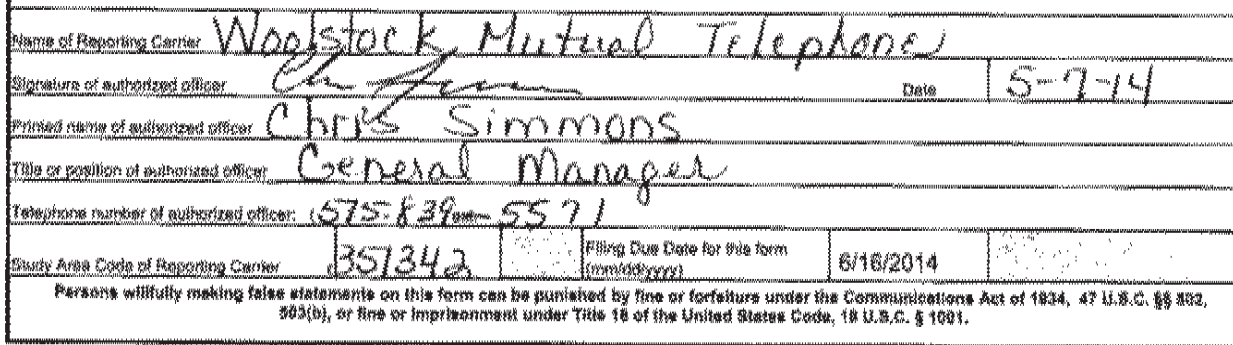 Name of Reporting Carrier Woolstock Mutual Telephone
Signature of authorized officer Date 5-7-14
Printed name of authorized officer Chris Simmons
Title or position of authorized officer General Manager
Telephone number of authorized officer: (515-839-5571
Study Area Code of Reporting Carrier 351342 Filing Due Date for this form (mm/dd/yyyy) 6/16/2014
Persons willfully making false statements on this form can be punished by fine or forfeiture under the Communications Act of 1934, 47 U.S.C. §§ 502,
503(b), or fine or imprisonment under Title 18 of the United States Code, 18 U.S.C. § 1001.